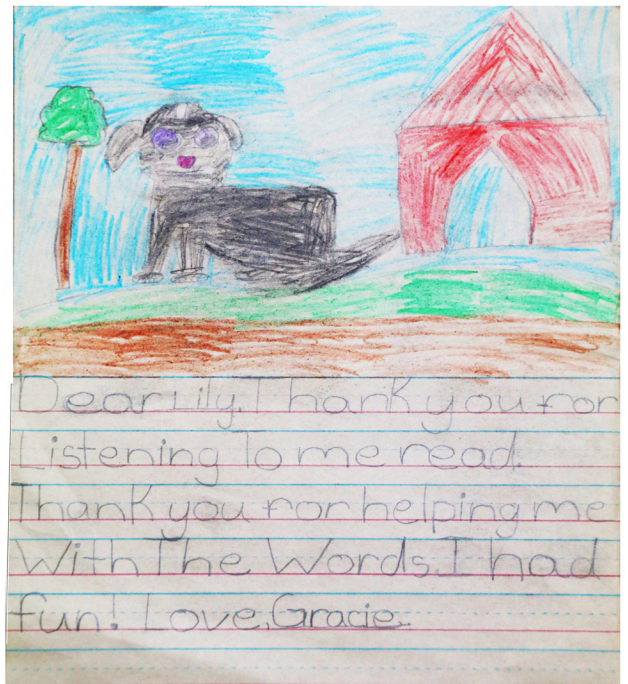 Dear Lily, Thank you for
Listening To me read.
Thank you for helping me
With The Words. I had
fun! Love, Gracie.